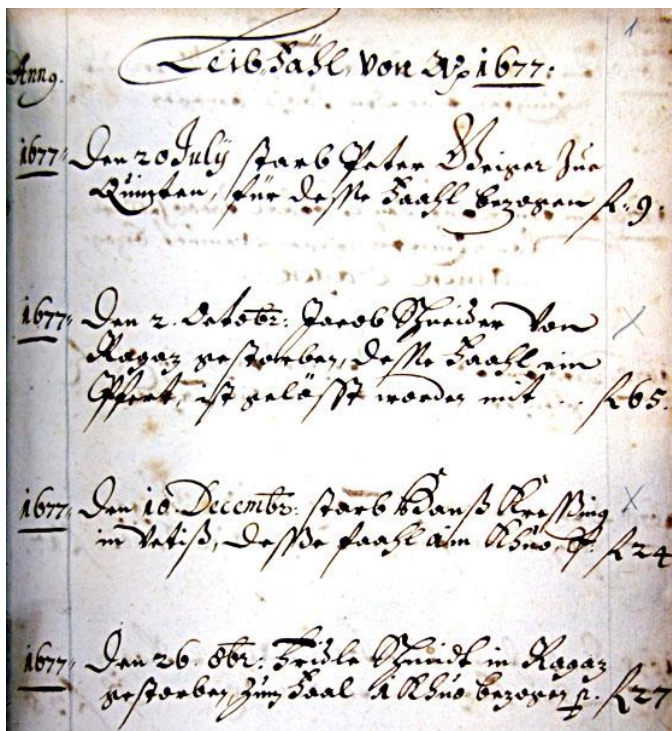 1
Anno.
Leib Fähl, von Ao 1677:
1677. Den 20 July starb Peter Geiger Zue
Quinten, für desse Faahl bezogen fl. 9:
1677. Den 2. Octobr: Jacob Schneider von X
Ragaz gestorben, desse Faahl ein
Pfert, ist gelösst worden mit .. fl 65.
1677. Den 10 Decembr: starb Hanß Kressing X
in Vetiß, desse faahl ain Khuo, p. fl 24
1677. Den 26. Xbr: Fridle Schmidt in Ragaz
gestorben, Zum Faal 1 Khuo bezogen p. fl 27